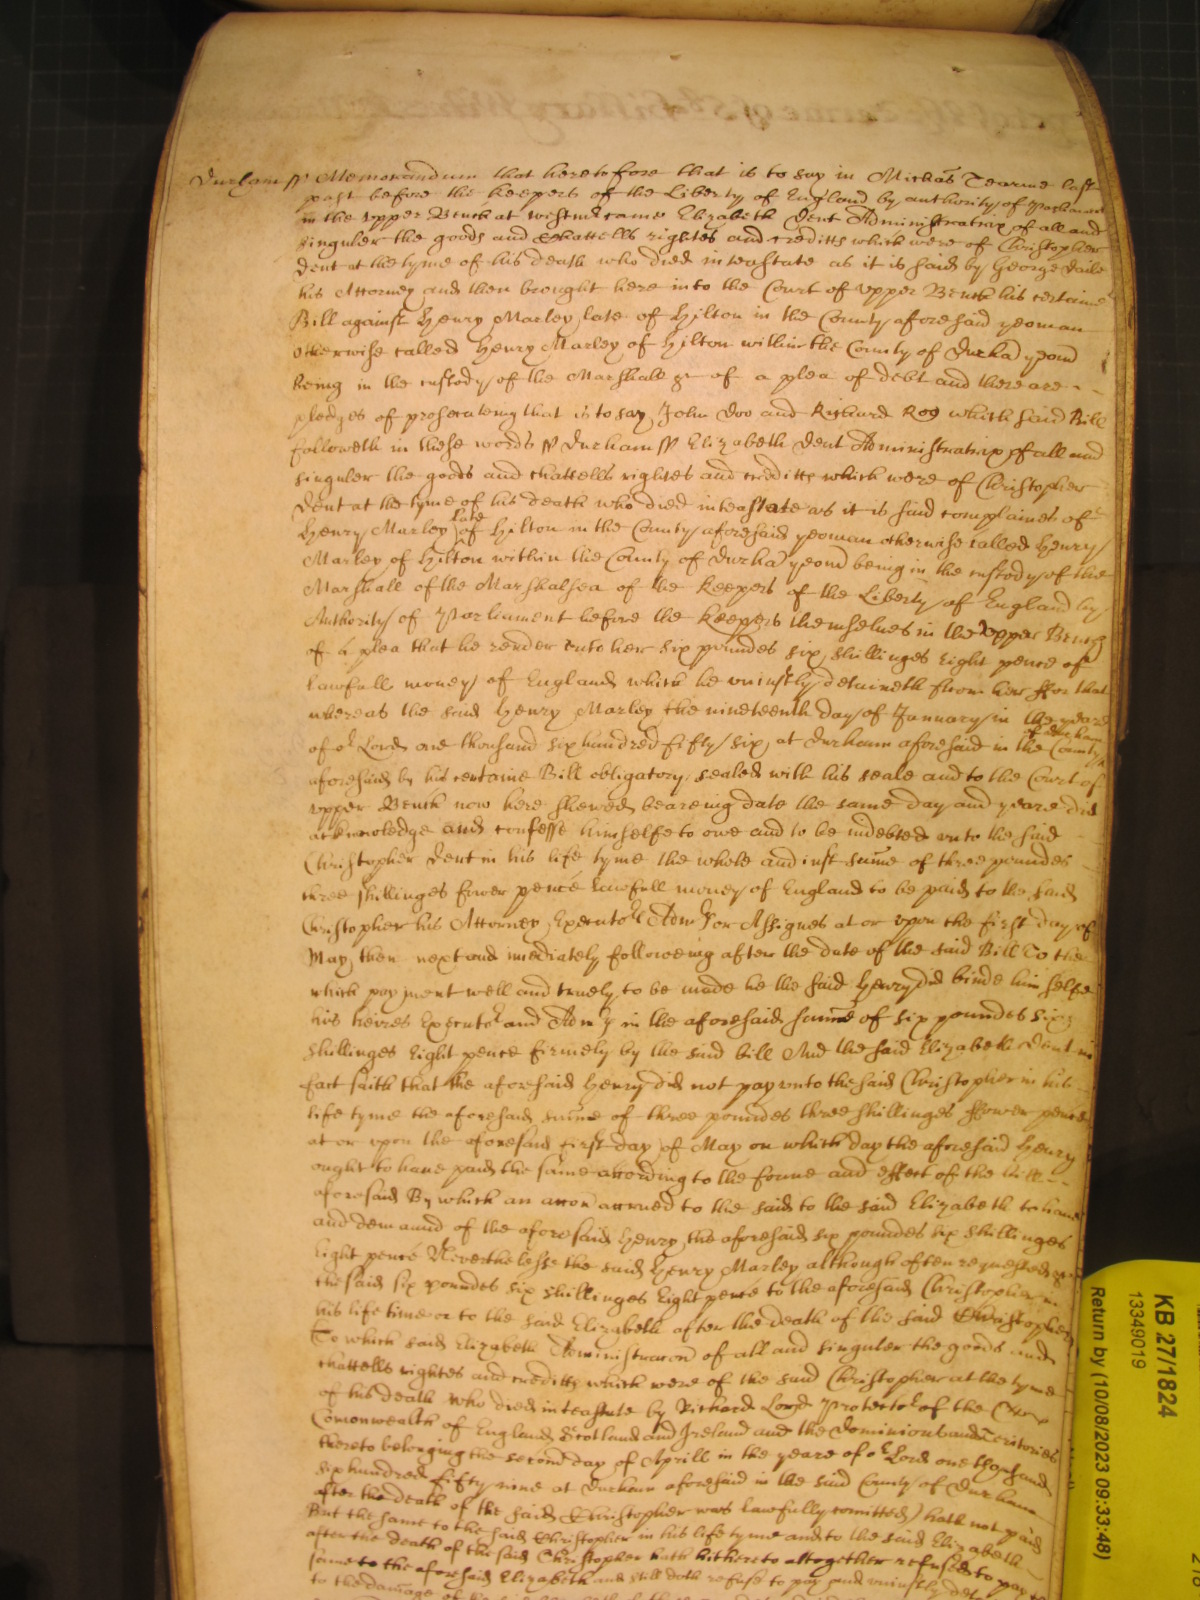 Durham ss Memorandum that heretofore that is to say in Michas Tearme last
past before the keepers of the Liberty of England by authority of Parliament
in the upper Bench at Westmr came Elizabeth Dent Administratrix of all and
singuler the goods and Chattells rightes and creditts which were of Christopher
Dent at the tyme of his death who died inteastate as it is said by George Daile
his Attorney and then brought here into the Court of upper Bench his certaine
Bill against Henry Marley late of Hilton in the County aforesaid yeoman
otherwise called Henry Marley of Hilton within the County of Durhā yeom
being in the custody of the Marshall &c of a plea of debt and there are
pledges of prosecuteing that is to say John Doo and Richard Roo which said Bill
followeth in these words ss Durham ss Elizabeth Dent Administratrix of all and
singuler the goods and chattells rightes and creditts which were of Christopher
Dent at the tyme of his death who died inteastate as it is said complaines of
Henry Marley late of Hilton in the County aforesaid yeoman otherwise called Henry
Marley of Hilton within the County of Durhā yeom being in the custody of the
Marshall of the Marshalsea of the Keepers of the Liberty of England by
Authority of Parliament before the Keepers themselves in the upper Bench
of a plea that he render unto her six poundes six shillinges Eight pence of
Lawfull money of England which he uniustly detaineth from her ffor that
whereas the said Henry Marley the nineteenth day of January in the yeare
of or Lord one thousand six hundred fifty six at Durham aforesaid in the County
of Durham
aforesaid by his certaine Bill obligatory sealed with his seale and to the Court of
upper Bench now here shewed beareing date the same day and yeare did
acknowledge and confesse himselfe to owe and to be indebted unto the said
Christopher Dent in his life tyme the whole and iust sume of three poundes
three shillinges fower pence Lawfull money of England to be paid to the said
Christopher his Attorney Executors Admrs or Assignes at or upon the first day of
May then next and imediately followeing after the date of the said Bill To the
which payment well and truely to be made he the said Henry did binde him selfe
his heires Executors and Admrs in the aforesaid sume of six poundes six
shillinges Eight pence firmely by the said bill And the said Elizabeth Dent in
fact saith that the aforesaid Henry did not pay unto the said Christopher in his
life tyme the aforesaid sume of three poundes three shillinges ffower pence
at or upon the aforesaid first day of May on which day the aforesaid Henry
ought to have paid the same according to the forme and effect of the bill
aforesaid By which an accon accrued to the said to the said Elizabeth to have
and demaund of the aforesaid Henry the aforesaid six poundes six shillinges
Eight pence Neverthelesse the said Henry Marley although often requested
the said six poundes six shillinges Eight pence to the aforesaid Christopher in
his life time or to the said Elizabeth after the death of the said Christopher
To which said Elizabeth Administracon of all and singuler the goods and
chattells rightes and creditts which were of the said Christopher at the tyme
of his death who died inteastate by Richard Lord Protector of the
Comonwealth of England Scotland and Ireland and the Dominions and Teritories
thereto belonging the second day of Aprill in the yeare of or Lord one thousand
six hundred fifty nine at Durham aforesaid in the said County of Durham
after the death of the said Christopher was lawfully comitted) hath not paid
But the same to the said Christopher in his life tyme and to the said Elizabeth
after the death of the said Christopher hath hitherto altogether refused to pay
same to the aforesaid Elizabeth and still doth refuse to pay and uniustly
to the damage of the
KB 27/1824
13349019
Return by (10/08/2023 09:33:48)